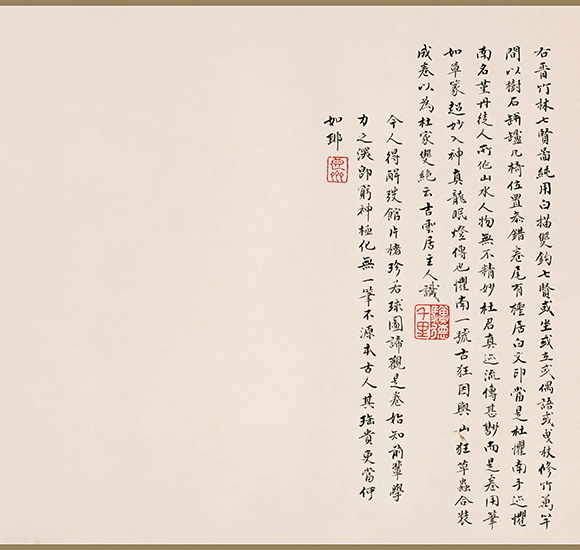 右晋竹林七賢啚純用白描雙鈎七賢或坐或立或偶語或曳杖修竹萬竿
間以樹石琴罏几椅位置叅錯卷尾有檉居白文印當是杜懼南手迹懼
南名堇丹徒人所作山水人物無不精妙杜君真迹流傳甚尠而是卷用筆
如草篆超妙入神真龍眠燈傳也懼南一號古狂因與山狂草蟲合裝
成卷以為杜家雙絕云吉雲居主人識
今人得解弢館片楮珍若球圖諦觀是卷始知前輩學
力之深即窮神極化無一筆不源本古人其珍貴更當何
如耶